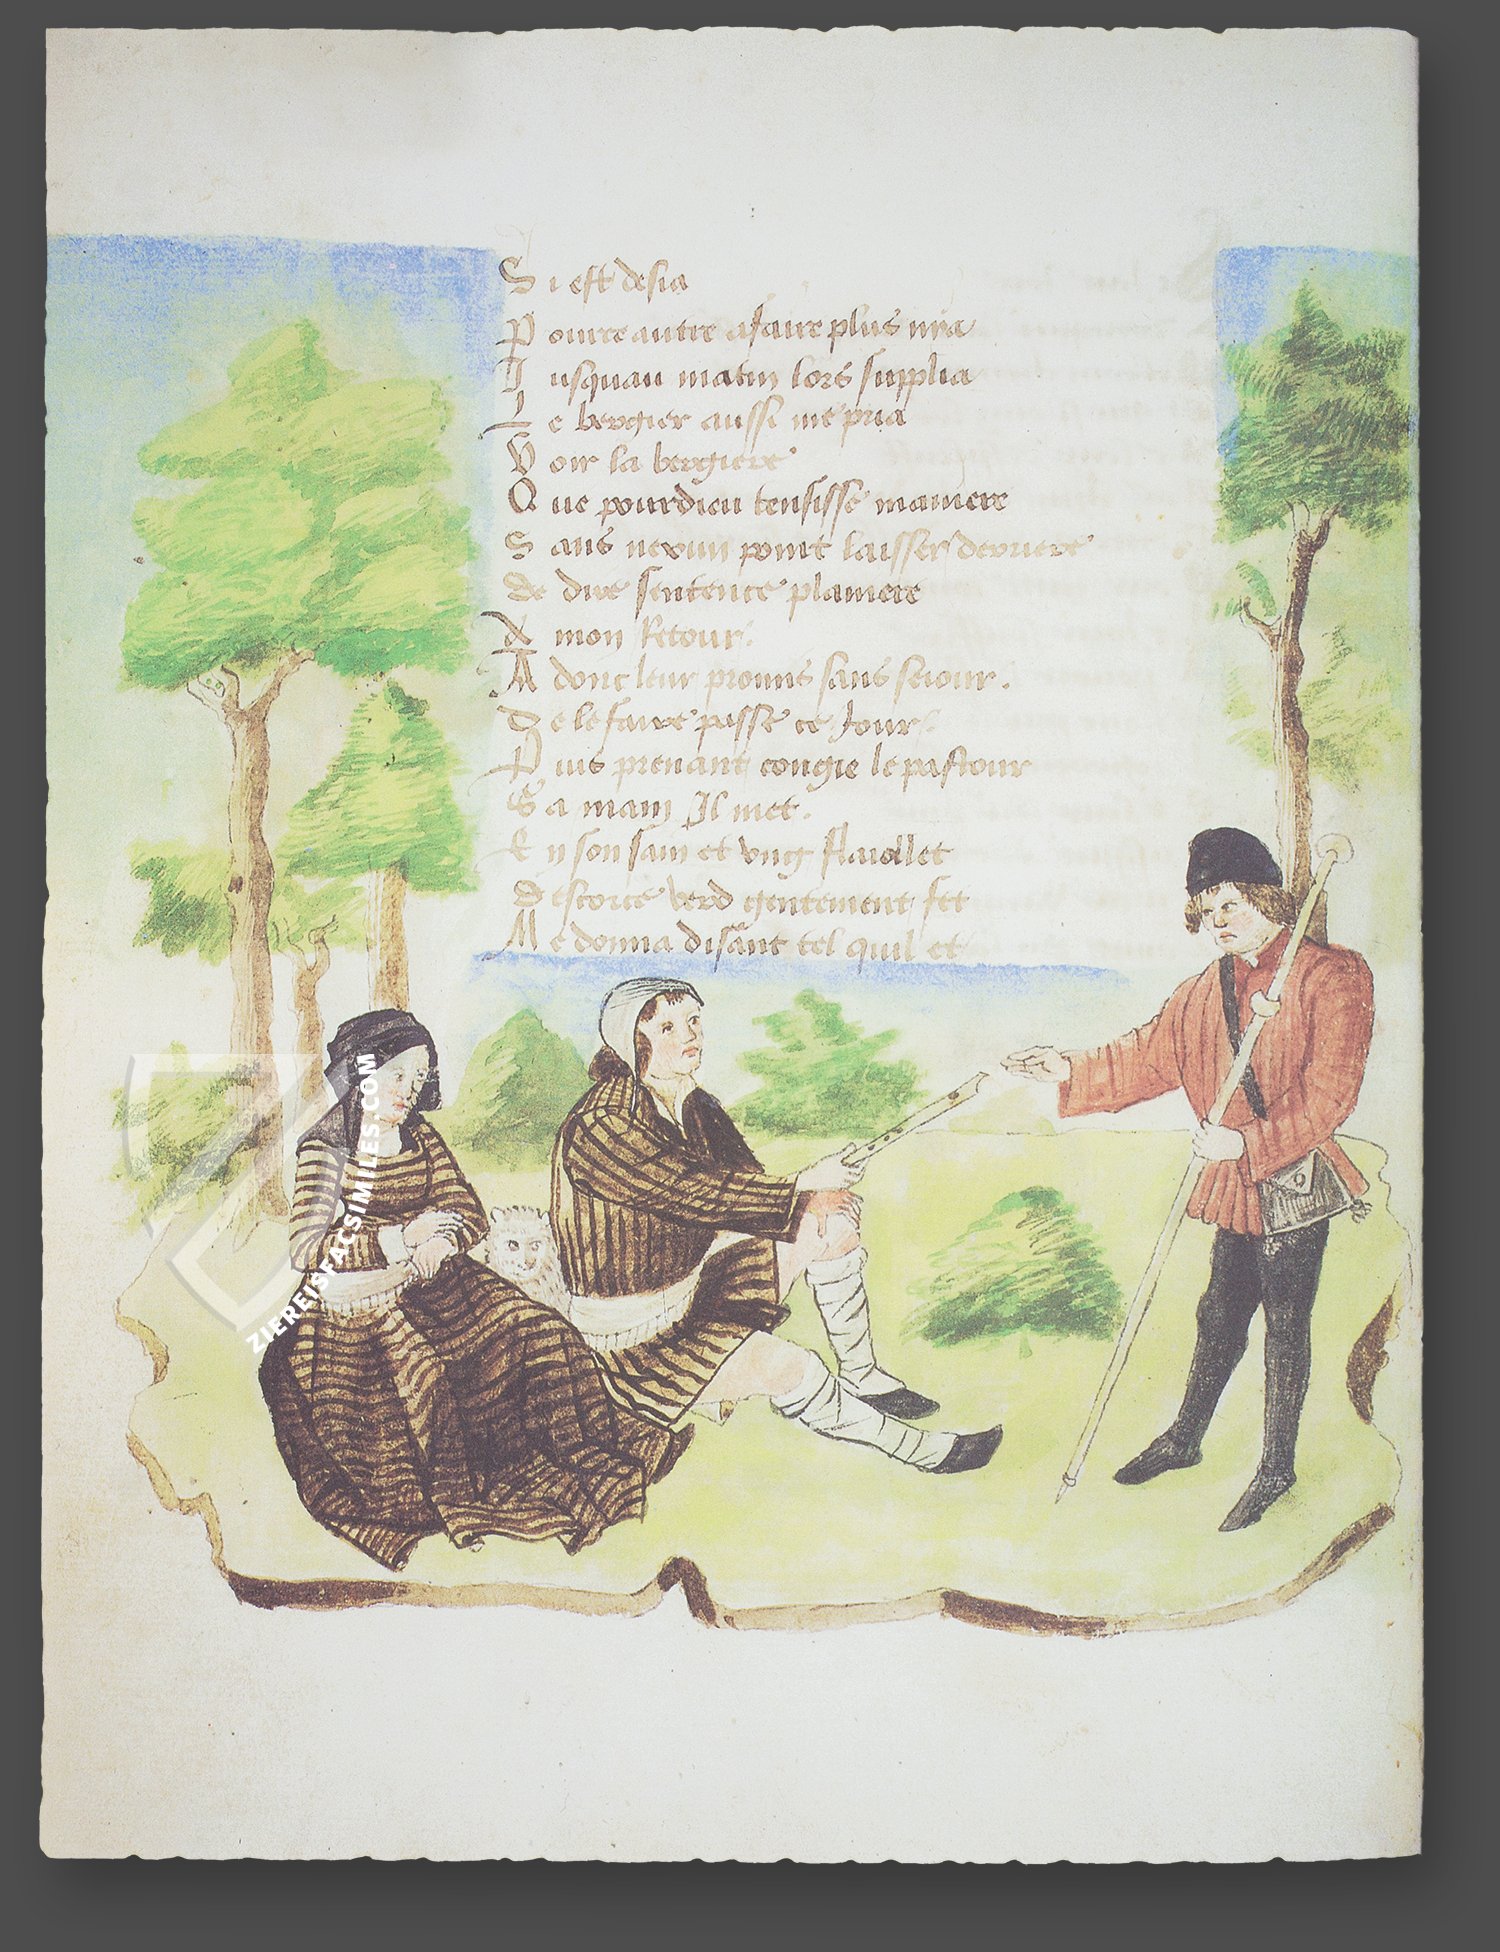 Si est desia
Pour aultre afaire plus nya
Jusquau matin lors supplia
Le bergier aussi me pria
Voir la bergiere
Que pourdieu tensisse maniere
Sans nexun point laisser derriere
de dire sentence planiere
A mon Retour.
Adonc leur promis sans seiour.
De le faire passe ce Jour.
Puis prenant congie le pastour
Sa main Il met.
En son sain et vng flaiollet
Descorce verd gentement fet
Me donna disant tel quil et
ZIEREISFACSIMILES.COM